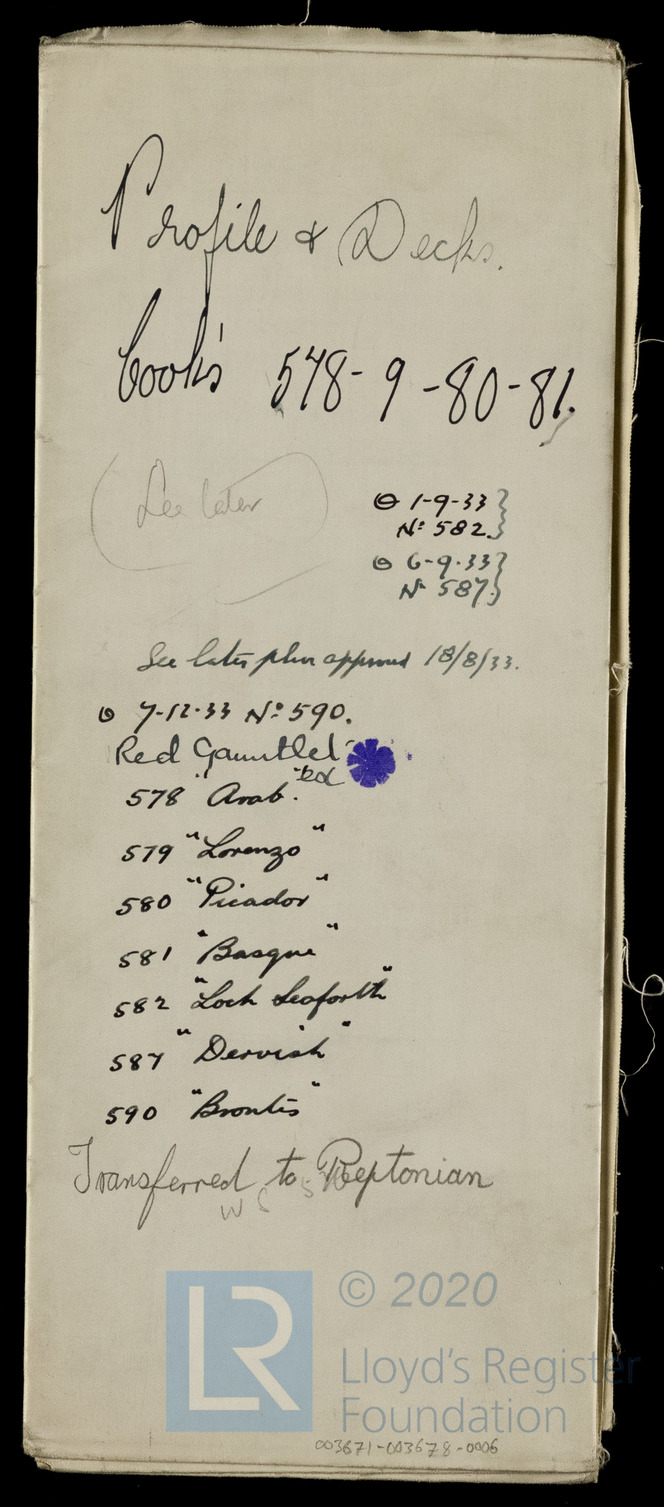 Profile & Decks.
Cook's 578-9-80-81.
See later
⊙ 1-9-33
Nº 582.
⊙ 6-9-33
Nº 587.
See later plan approved 18/8/33.
⊙ 7-12-33 Nº 590.
Red Gauntlet
578 "Arab".
579 "Lorenzo"
580 "Picador"
581 "Basque"
582 "Loch Seaforth"
587 "Dervish"
590 "Brontes"
Transferred to Reptonian
LR
© 2020
Lloyd's Register
Foundation
003671-003678-0006